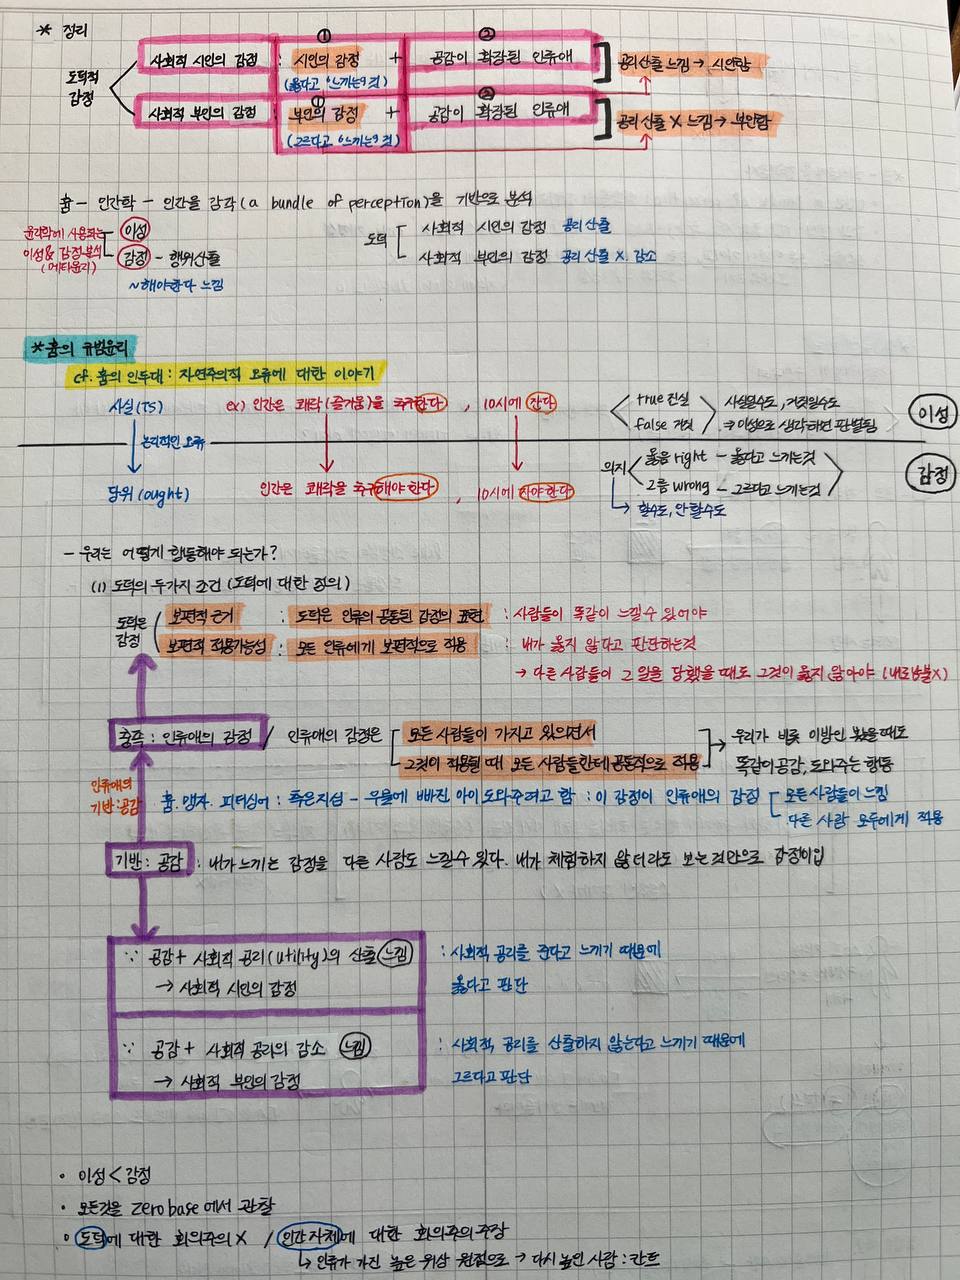 * 정리
① ②
도덕적 감정
사회적 시인의 감정 : 시인의 감정 + 공감이 확장된 인류애 ] 공리산출 느낌 → 시인함
(옳다고 "느끼는" 것)
① ②
사회적 부인의 감정 : 부인의 감정 + 공감이 확장된 인류애 ] 공리산출 X 느낌 → 부인함
(그르다고 "느끼는" 것)
흄 - 인간학 - 인간을 감각(a bundle of perception)을 기반으로 분석
윤리학에 사용되는
이성& 감정 분석
(메타윤리)
이성
감정 - 행위산출
~해야한다 느낌
도덕 [ 사회적 시인의 감정 공리 산출
사회적 부인의 감정 공리 산출 X. 감소
* 흄의 규범윤리
cf. 흄의 인두대 : 자연주의적 오류에 대한 이야기
사실(is) ex) 인간은 쾌락(즐거움)을 추구한다, 10시에 잔다
true 진실
false 거짓
사실일수도, 거짓일수도
⇒ 이성으로 생각하면 판별됨
이성
논리적인 오류
당위(ought) 인간은 쾌락을 추구해야 한다, 10시에 자야한다
의지
옳음 right - 옳다고 느끼는것
그름 wrong - 그르다고 느끼는것
↳ 할수도, 안 할수도
감정
- 우리는 어떻게 행동해야 되는가?
(1) 도덕의 두가지 조건 (도덕에 대한 정의)
도덕은 감정
보편적 근거 : 도덕은 인류의 공통된 감정의 표현 : 사람들이 똑같이 느낄수 있어야
보편적 적용가능성 : 모든 인류에게 보편적으로 적용 : 내가 옳지 않다고 판단하는것
→ 다른 사람들이 그 일을 당했을 때도 그것이 옳지 않아야 (내로남불X)
충족 : 인류애의 감정 / 인류애의 감정은
모든 사람들이 가지고 있으면서
그것이 적용될 때 모든 사람들한테 공통적으로 적용
→ 우리가 비록 이방인 봤을때도
똑같이 공감, 도와주는 행동
인류애의
기반:공감
흄. 맹자. 피터싱어 : 측은지심 - 우물에 빠진 아이 도와주려고 함 : 이 감정이 인류애의 감정
모든 사람들이 느낌
다른 사람 모두에게 적용
기반 : 공감 : 내가 느끼는 감정을 다른 사람도 느낄수 있다. 내가 체험하지 않더라도 보는것만으로 감정이입
∵ 공감 + 사회적 공리(utility)의 산출 느낌
→ 사회적 시인의 감정
: 사회적 공리를 준다고 느끼기 때문에
옳다고 판단
∵ 공감 + 사회적 공리의 감소 느낌
→ 사회적 부인의 감정
: 사회적 공리를 산출하지 않는다고 느끼기 때문에
그르다고 판단
· 이성 < 감정
· 모든것을 zero base에서 관찰
· 도덕에 대한 회의주의 X / 인간자체에 대한 회의주의 주장
↳ 인류가 가진 높은 위상 원점으로 → 다시 높인 사람 : 칸트